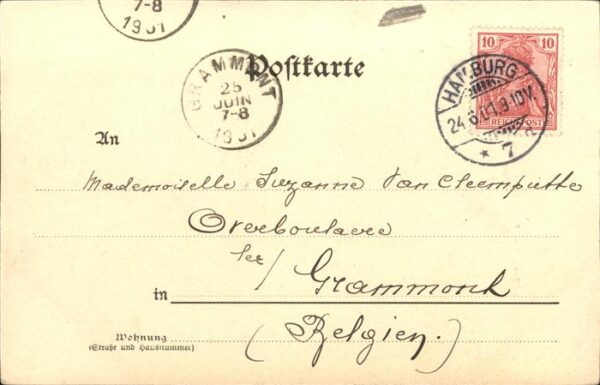 7-8
1901
Postkarte
GRAMMONT
25
JUIN
7-8
1901
10 10
REICHSPOST
HAMBURG
24.6.01.9-10V.
* 7
An
Mademoiselle Suzanne Van Cleemputte
Overboulaere
bei/ Grammont
in
(Belgien.)
Wohnung
(Straße und Hausnummer)